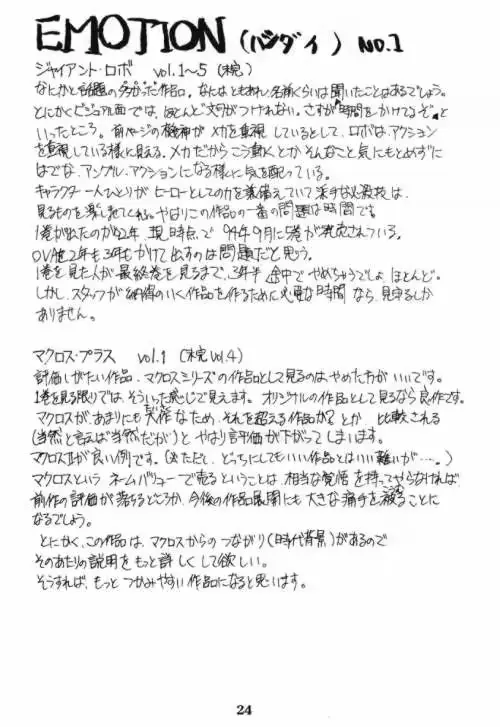 EMOTION (バンダイ) NO.1
ジャイアント・ロボ vol.1〜5 (未完)
なにかと話題の多かった作品。なにはともあれ、名前くらいは聞いたことはあるでしょう。
とにかくビジュアル面では、ほとんど文句がつけれない。さすが"時間をかけてるぞ"と
いったところ。前ページの機神がメカを重視しているとして、ロボは、アクション
を重視している様に見える。メカだからこう動くとかそんなこと気にもとめずに
はでな、アングル、アクションになる様に気を配っている。
キャラクター一人ひとりがヒーローとしての力を兼備えていて派手な必殺技は、
見るものを楽しませてくれる。やはりこの作品の一番の問題は時間です。
1巻が出たのが92年、現時点で94年9月に5巻が発売されている。
OVAを2年も3年もかけて出すのは問題だと思う。
1巻を見た人が最終巻を見るまで、3年半 途中でやめちゃうでしょ、ほとんど。
しかし、スタッフが納得のいく作品を作るために必要な時間なら、見守るしか
ありません。
マクロス・プラス vol.1 (未完 vol.4)
評価しがたい作品、マクロスシリーズの作品として見るのは、やめた方がいいです。
1巻を見る限りでは、そういった感じで見えます。オリジナルの作品として見るなら良作です。
マクロスがあまりにも大作なため、それを超える作品か?とか 比較される
(当然と言えば当然だが)と やはり評価が下がってしまいます。
マクロスIIが良い例です。(※ただし、どっちにしてもいい作品とはいい難いが…。)
マクロスというネームバリューで売るということは、相当な覚悟を持ってやらなければ
前作の評価が落ちるどころか、今後の作品展開にも大きな痛手を被ることに
なるでしょう。
とにかく、この作品は、マクロスからのつながり(時代背景)があるので
そのあたりの説明をもっと詳しくして欲しい。
そうすれば、もっとつかみやすい作品になると思います。
24